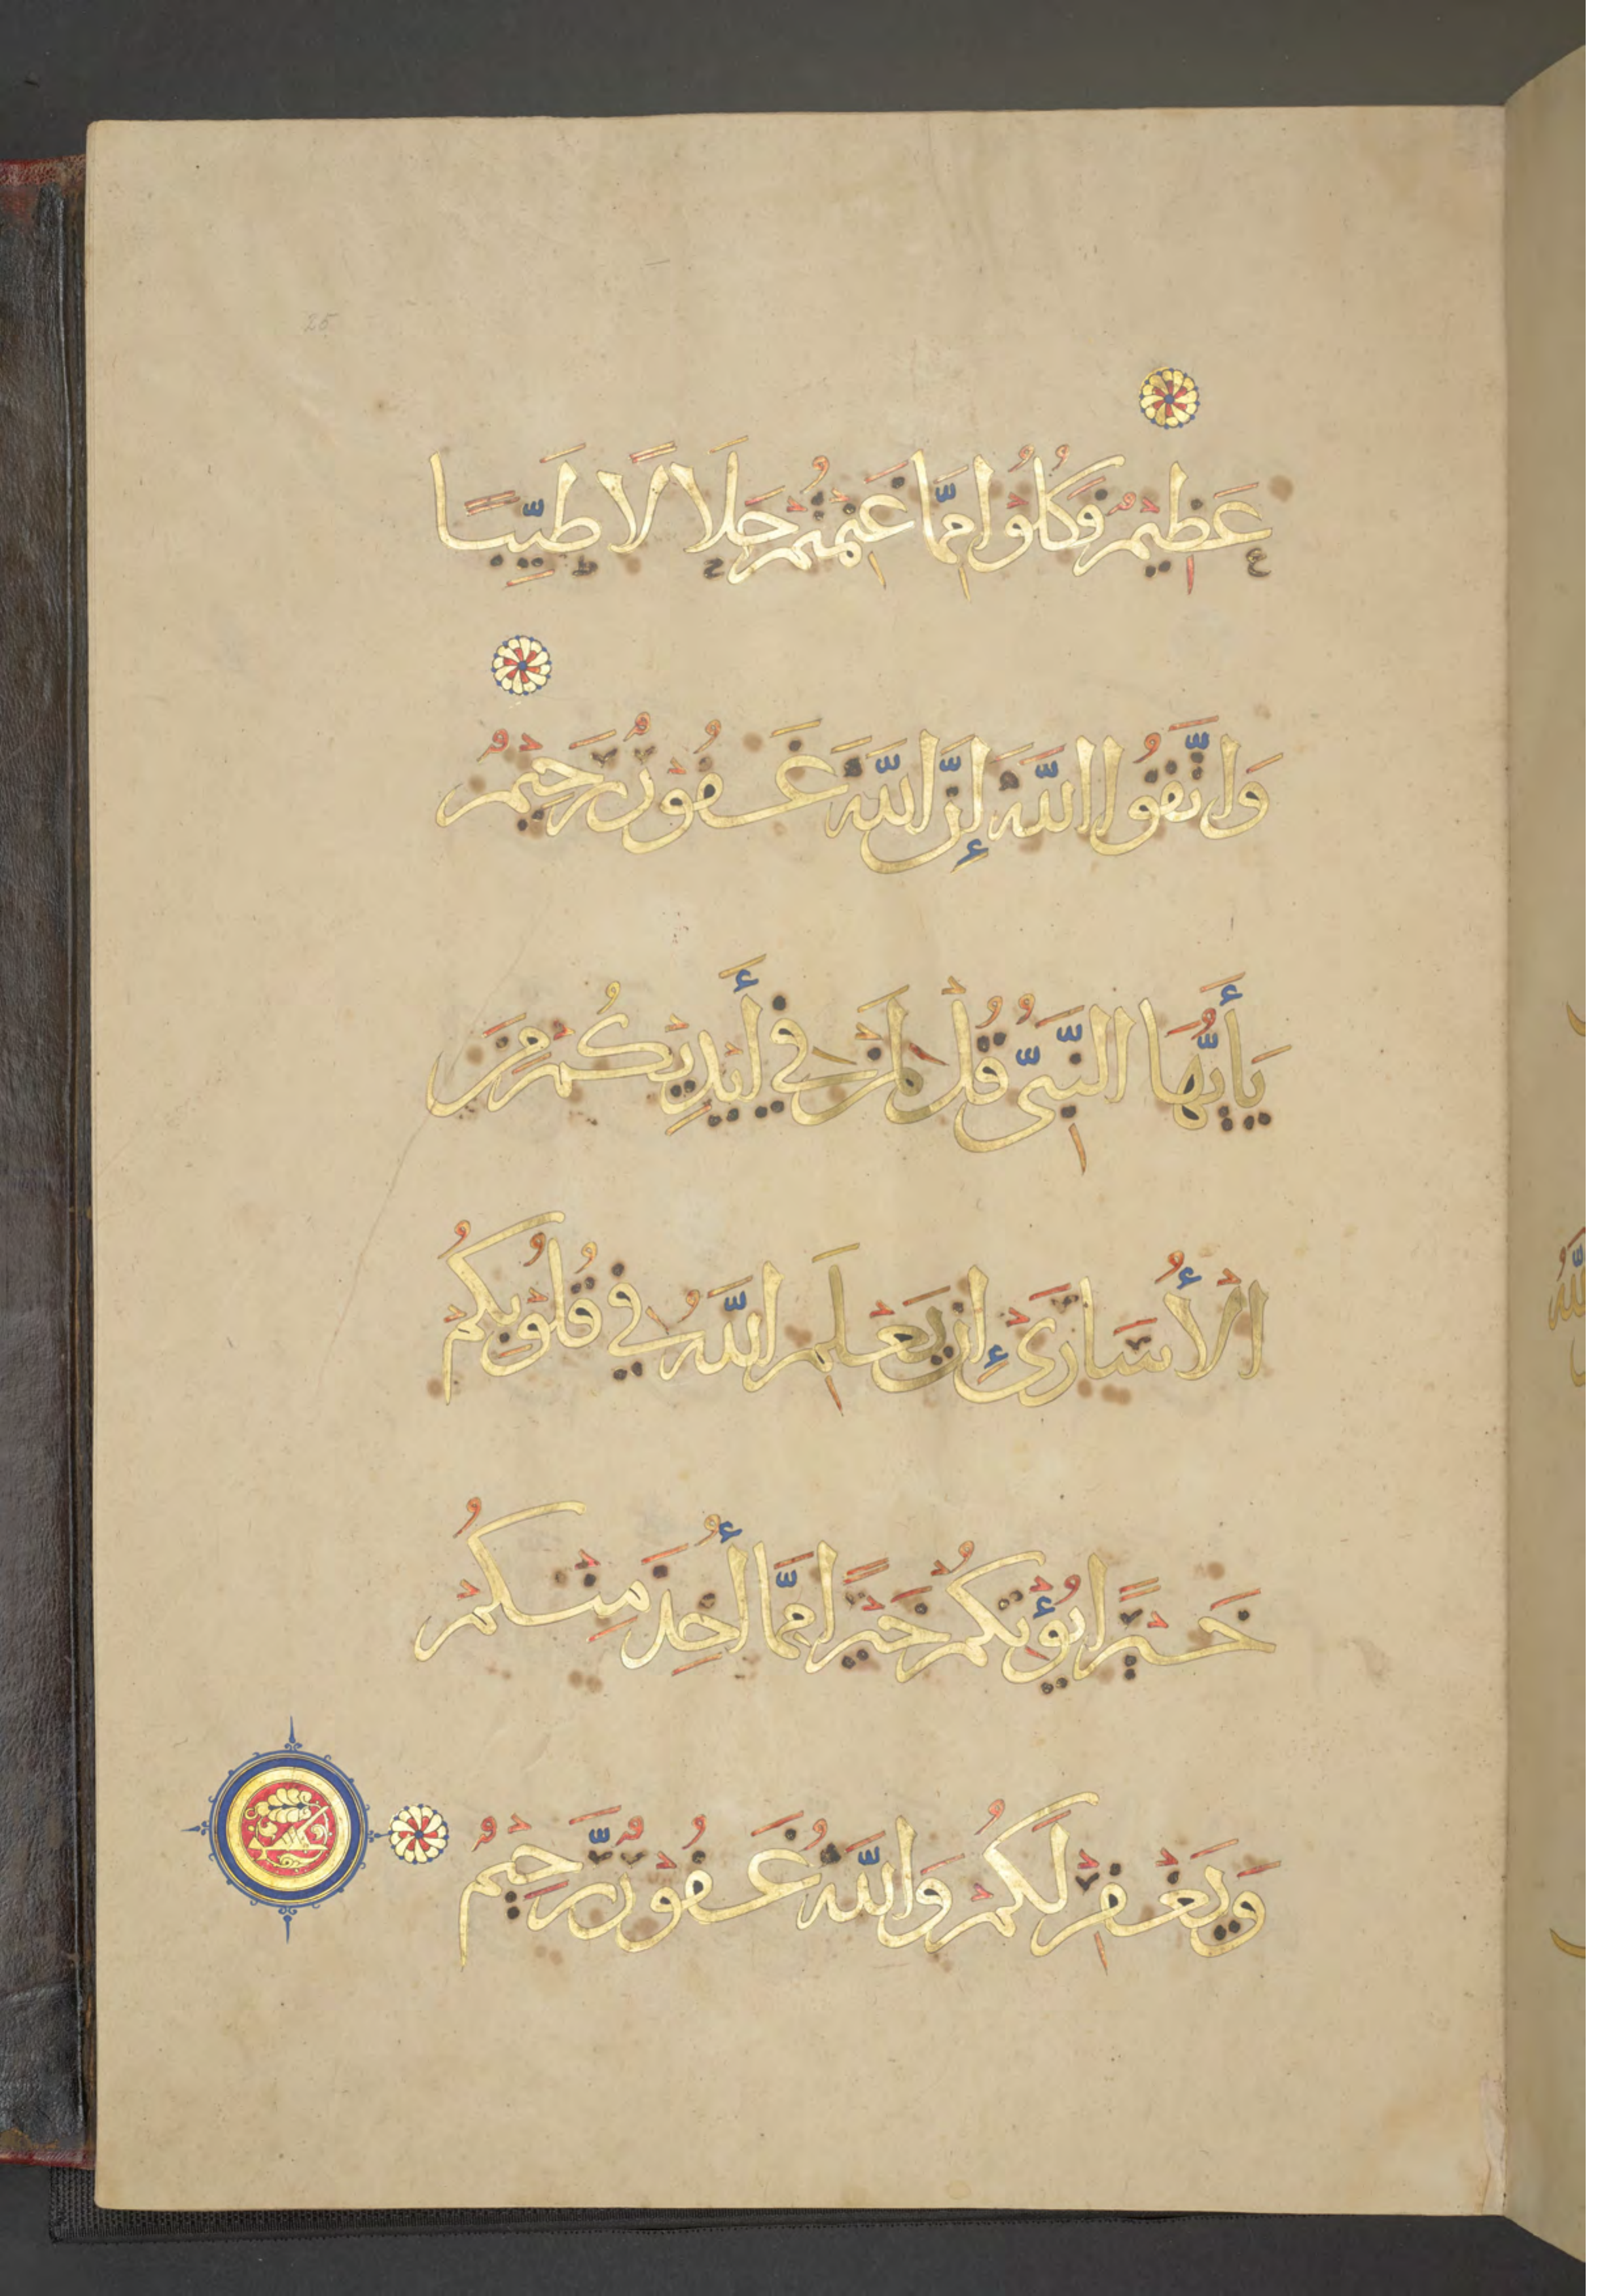 25
عَظِيمٌ فَكُلُوْا مِمَّا غَنِمْتُمْ حَلَالًا طَيِّبًا
وَاتَّقُوا اللَّهَ إِنَّ اللَّهَ غَفُوْرٌ رَحِيْمٌ
يَأَيُّهَا النَّبِيُّ قُلْ لِمَنْ فِي أَيْدِيْكُمْ مِنَ
الْأُسَارَىٰ إِنْ يَعْلَمِ اللَّهُ فِي قُلُوْبِكُمْ
خَيْرًا يُؤْتِكُمْ خَيْرًا مِمَّا أُخِذَ مِنْكُمْ
وَيَغْفِرْ لَكُمْ وَاللَّهُ غَفُوْرٌ رَّحِيْمٌ